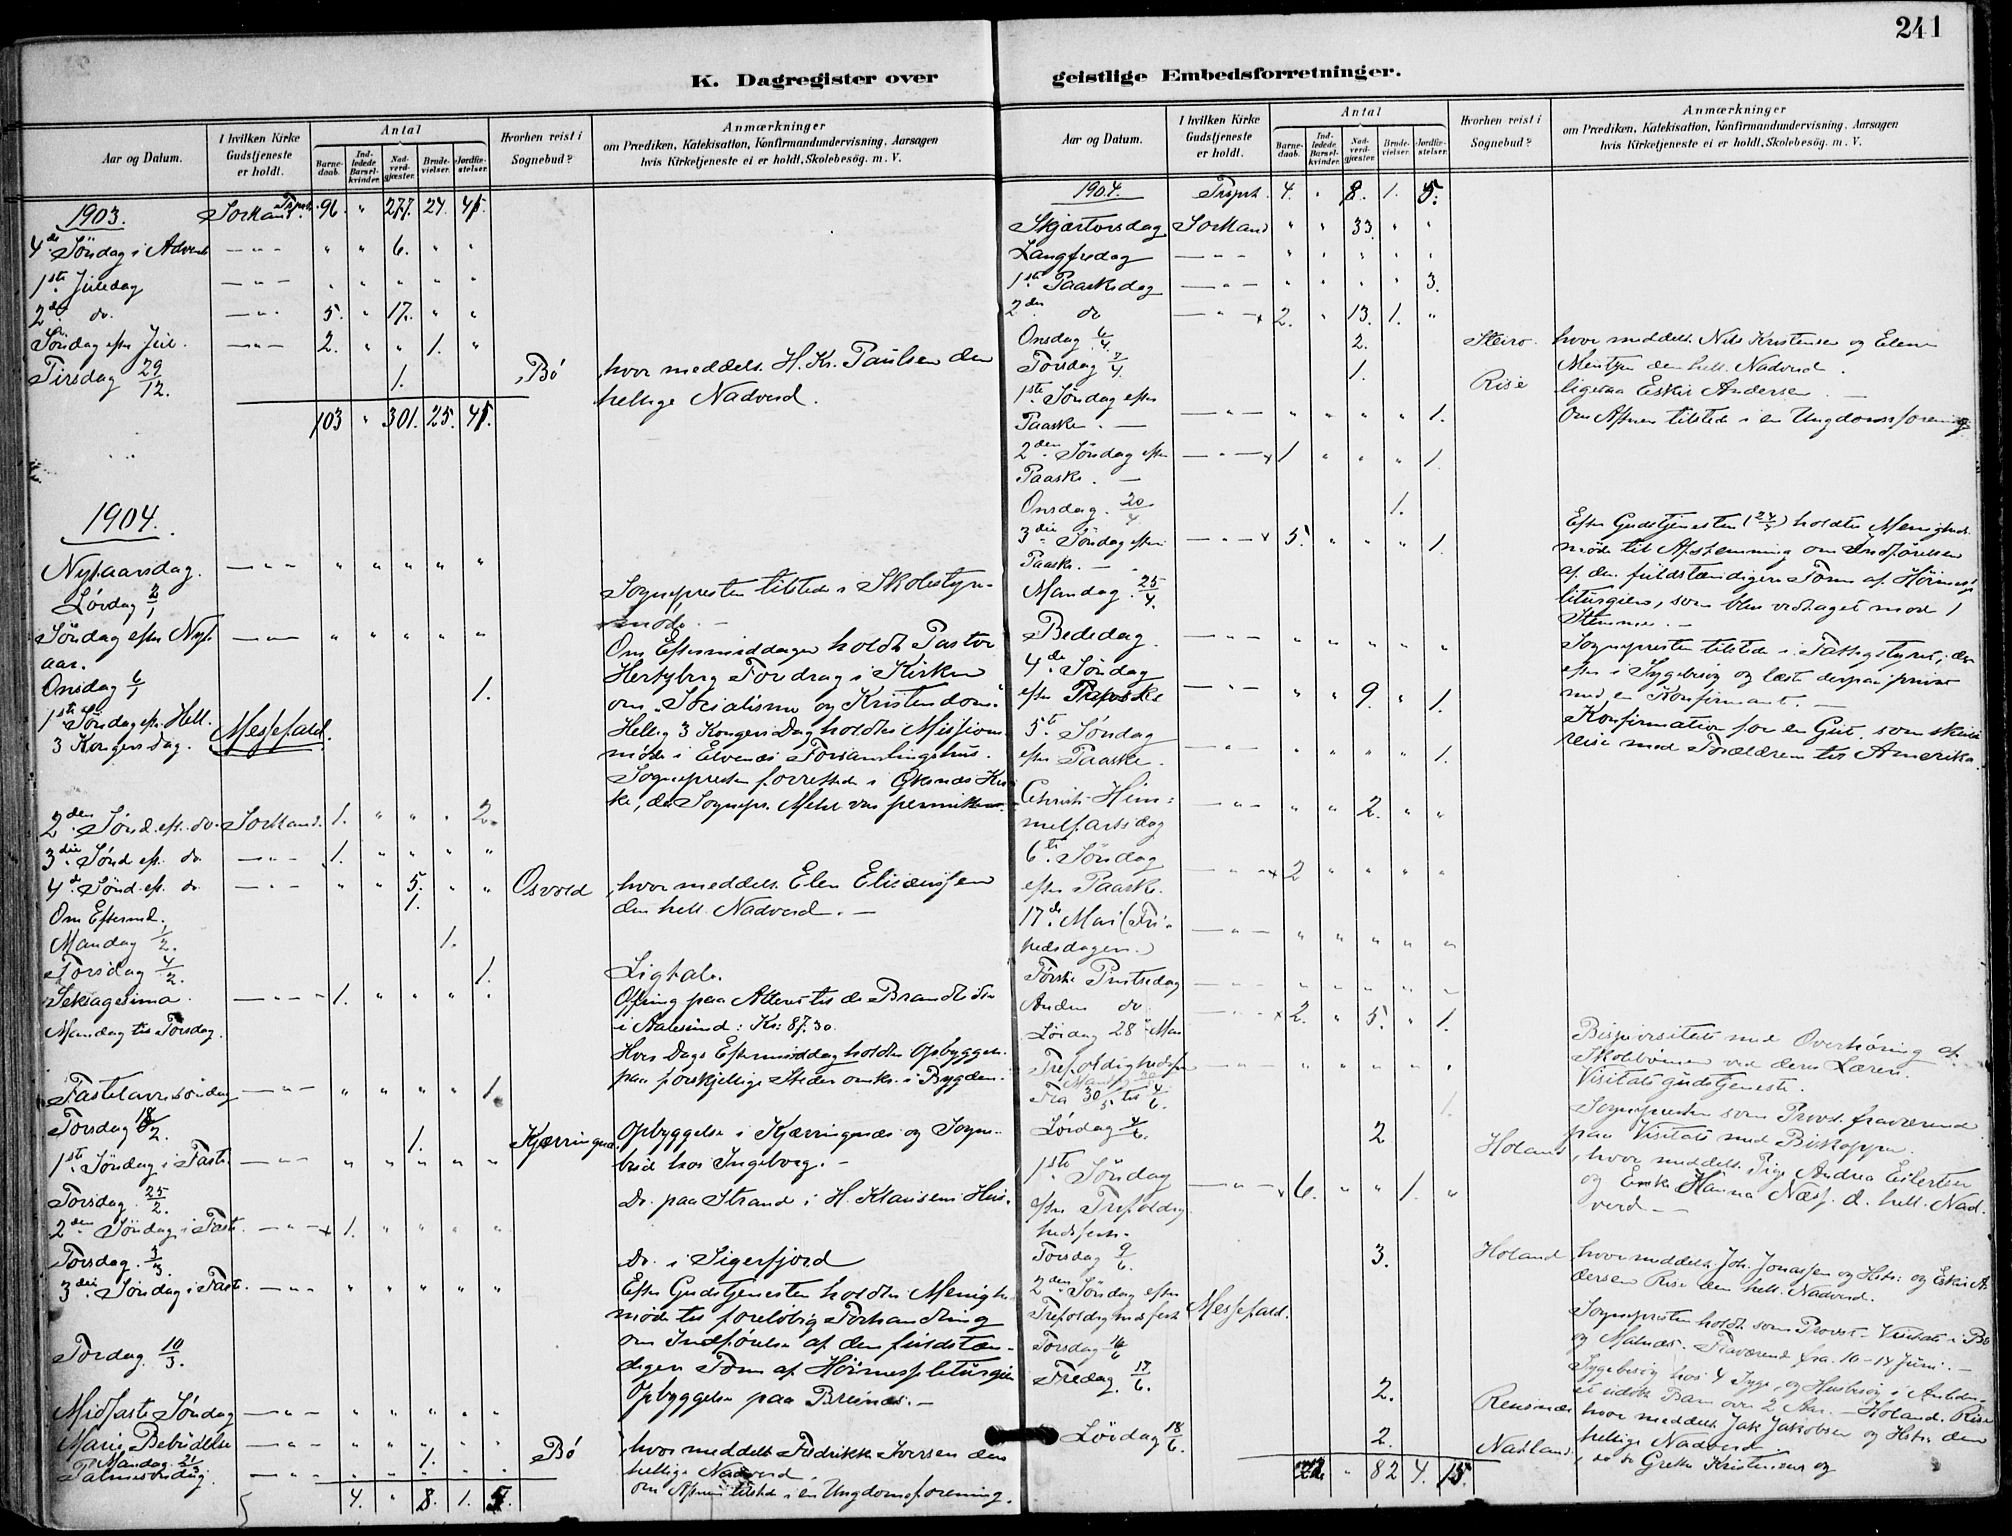 241
K. Dagregister over geistlige Embedsforretninger.
Aar og Datum.
I hvilken Kirke Gudstjeneste er holdt.
Antal
Barnedaab.
Indledede Barselkvinder.
Nadverdgjæster.
Brudevielser.
Jordfæstelser.
Hvorhen reist i Sognebud?
Anmærkninger
om Prædiken, Katekisation, Konfirmandundervisning, Aarsagen
hvis Kirketjeneste ei er holdt, Skolebesög. m. V.
1903. Sortland Trsprt. 96. " 277. 24. 45.
4de Söndag i Advent — " — " " 6. " "
1ste Juledag — " — " " " " "
2den do. — " — 5. " 17. " "
Söndag efter Jul. — " — 2. " " 1. "
Tirsdag 29/12. 1. Bö hvor meddelt H. Kr. Paulsen den
hellige Nadverd.
103 " 301. 25. 45.
1904.
Nytaarsdag. — " — " " " " "
Lördag 2/1 Sognepresten tilstede i Skolestyre-
möde. —
Söndag efter Nyt- — " — " " " " "
aar. Om Eftermiddagen holdt Pastor
Hertzberg Foredrag i Kirken
Onsdag 6/1 1. om "Socialisme og Kristendom".
1ste Söndag eft. Hell. Messefald. Hellig 3 Kongers Dag holdtes Missions-
3 Kongers Dag. möde i Elvenes Forsamlingshus.
Sognepresten forrettede i Øksnæs Kir-
ke, da Sognepr. Mehr var permitteret.
2den Sönd. eft. do. Sortland. 1. " " " 2.
3die Sönd. eft. do — " — 1. " " " "
4de Sönd. eft. do — " — " " 5. " " Osvold hvor meddelt Elen Elisæussen
Om Efterm. 1. den hell. Nadverd. —
Mandag 1/2. 1.
Torsdag 4/2. 1. Ligtale.
Seksagesima — " — 1. " " " " Ofring paa Alteret til de Brandlidte
i Aalesund: Kr: 87.30.
Mandag til Torsdag. Hver Dags Eftermiddag holdtes Opbyggelse
paa forskjellige Steder omkr. i Bygden.
Fastelavnssöndag — " — " " " " 1.
Torsdag 18/2. 1. Kjærringnæs Opbyggelse i Kjærringnæs og Sogne-
bud hos Ingeborg. —
1ste Söndag i Faste. — " — " " " " "
Torsdag 25/2. Do. paa Strand i H. Klausens Hus.
2den Söndag i Faste — " — 1. " " " "
Torsdag 3/3. Do. i Sigerfjord
3die Söndag i Faste. — " — " " " " " Efter Gudstjenesten holdtes Menigheds-
möde til forelöbig Forhandling
om Indförelse af den fuldstæn-
Torsdag 10/3. digere Form af Höimesseliturgien
Opbyggelse paa Breinæs. —
Midfaste Söndag — " — " " " " "
Marie Bebudelse — " — " " " " "
Mandag 21/3 1. Bö hvor meddelt Fredrikke Iversen den
hellige Nadverd.
Palmesöndag. — " — " " " " "
4. " 8. 1. 5. om Aftenen tilstede i en Ungdomsforening.
Aar og Datum.
I hvilken Kirke Gudstjeneste er holdt.
Antal
Barnedaab.
Indledede Barselkvinder.
Nadverdgjæster.
Brudevielser.
Jordfæstelser.
Hvorhen reist i Sognebud?
Anmærkninger
om Prædiken, Katekisation, Konfirmandundervisning, Aarsagen
hvis Kirketjeneste ei er holdt, Skolebesög. m. V.
1904. Trsprt. 4. " 8. 1. 5.
Skjærtorsdag Sortland " " 33. " "
Langfredag — " — " " " " "
1ste Paaskedag — " — " " " " 3.
2den do — " — 2. " 13. 1. "
Onsdag 6/4 2. Steiro. hvor meddelt Nils Kristensen og Elen
Mentzen den hell. Nadverd.
Torsdag 7/4. 1. Rise ligesaa Eskil Andersen. —
1ste Söndag efter
Paaske. — — " — " " " " 1. Om Aftenen tilstede i en Ungdomsforening
2den Söndag efter — " — 1 " " " 1.
Paaske. —
Onsdag. 20/4. 1.
3die Söndag efter — " — 5. " " " 1. Efter Gudstjenesten (24/4) holdtes Menigheds-
Paaske. — möde til Afstemning om Indförelsen
af den fuldstændigere Form af Höimesse-
Mandag 25/4. liturgien, som blev vedtaget mod 1
Stemme. —
Bededag. — " — " " " " " Sognepresten tilstede i Fattigstyret, der-
4de Söndag efter i Sygebesög og læst derpaa privat
efter Paaske — " — " " 9. " 1. med en Konfirmant. —
5te Söndag Konfirmation for en Gut, som skulde
efter Paaske. — " — " " " " 1. reise med Forældrene til Amerika.
Christi Him-
melfartsdag — " — " " 2. " "
6te Söndag
efter Paaske. — " — 2 " " " "
17de Mai (Fri-
hedsdagen.) — " — " " " " "
Förste Pintsedag — " — " " " " "
Anden do — " — 2. " 5. " 1.
Lördag 28 Mai Bispevisitats med Overhöring af
Skolebörnene ved deres Lærere.
Trefoldighedsfest — " — " " " " " Visitatsgudstjeneste.
Mandag 30
Fra 30/5 til 4/6. 1. Sognepresten som Provst fraværende
paa Visitats med Biskoppen.
Lördag 4/6. 2 Holand, hvor meddelt Pige Andrea Eilertsen
1ste Söndag — " — 6. " " 1. " og Enke Hanna Næss d. hell. Nad-
efter Trefoldig- verd. —
hedsfest.
Torsdag 9/6. 3. Holand hvor meddelt Joh. Jonassen og Hstr: og Eskil An-
dersen Rise den hell. Nadverd.
2den Söndag efter
Trefoldighedsfest Messefald. Sognepresten holdt som Provst Visitats i Bö
Torsdag 16/6 og Malnæs. Fraværende fra 10–14 Juni. —
Fredag 17/6. 2. Rensnæs Sygebesög hos 4 Syge, og Husbesög i Anledn.
et udöbt Barn over 2 Aar. — Holand. Rise
hvor meddelt Jak Jakobsen og Hstr. den
hellige Nadverd
Lördag 18/6. 2. Natland. do do Grethe Kristensen og
" 82 4. 15.